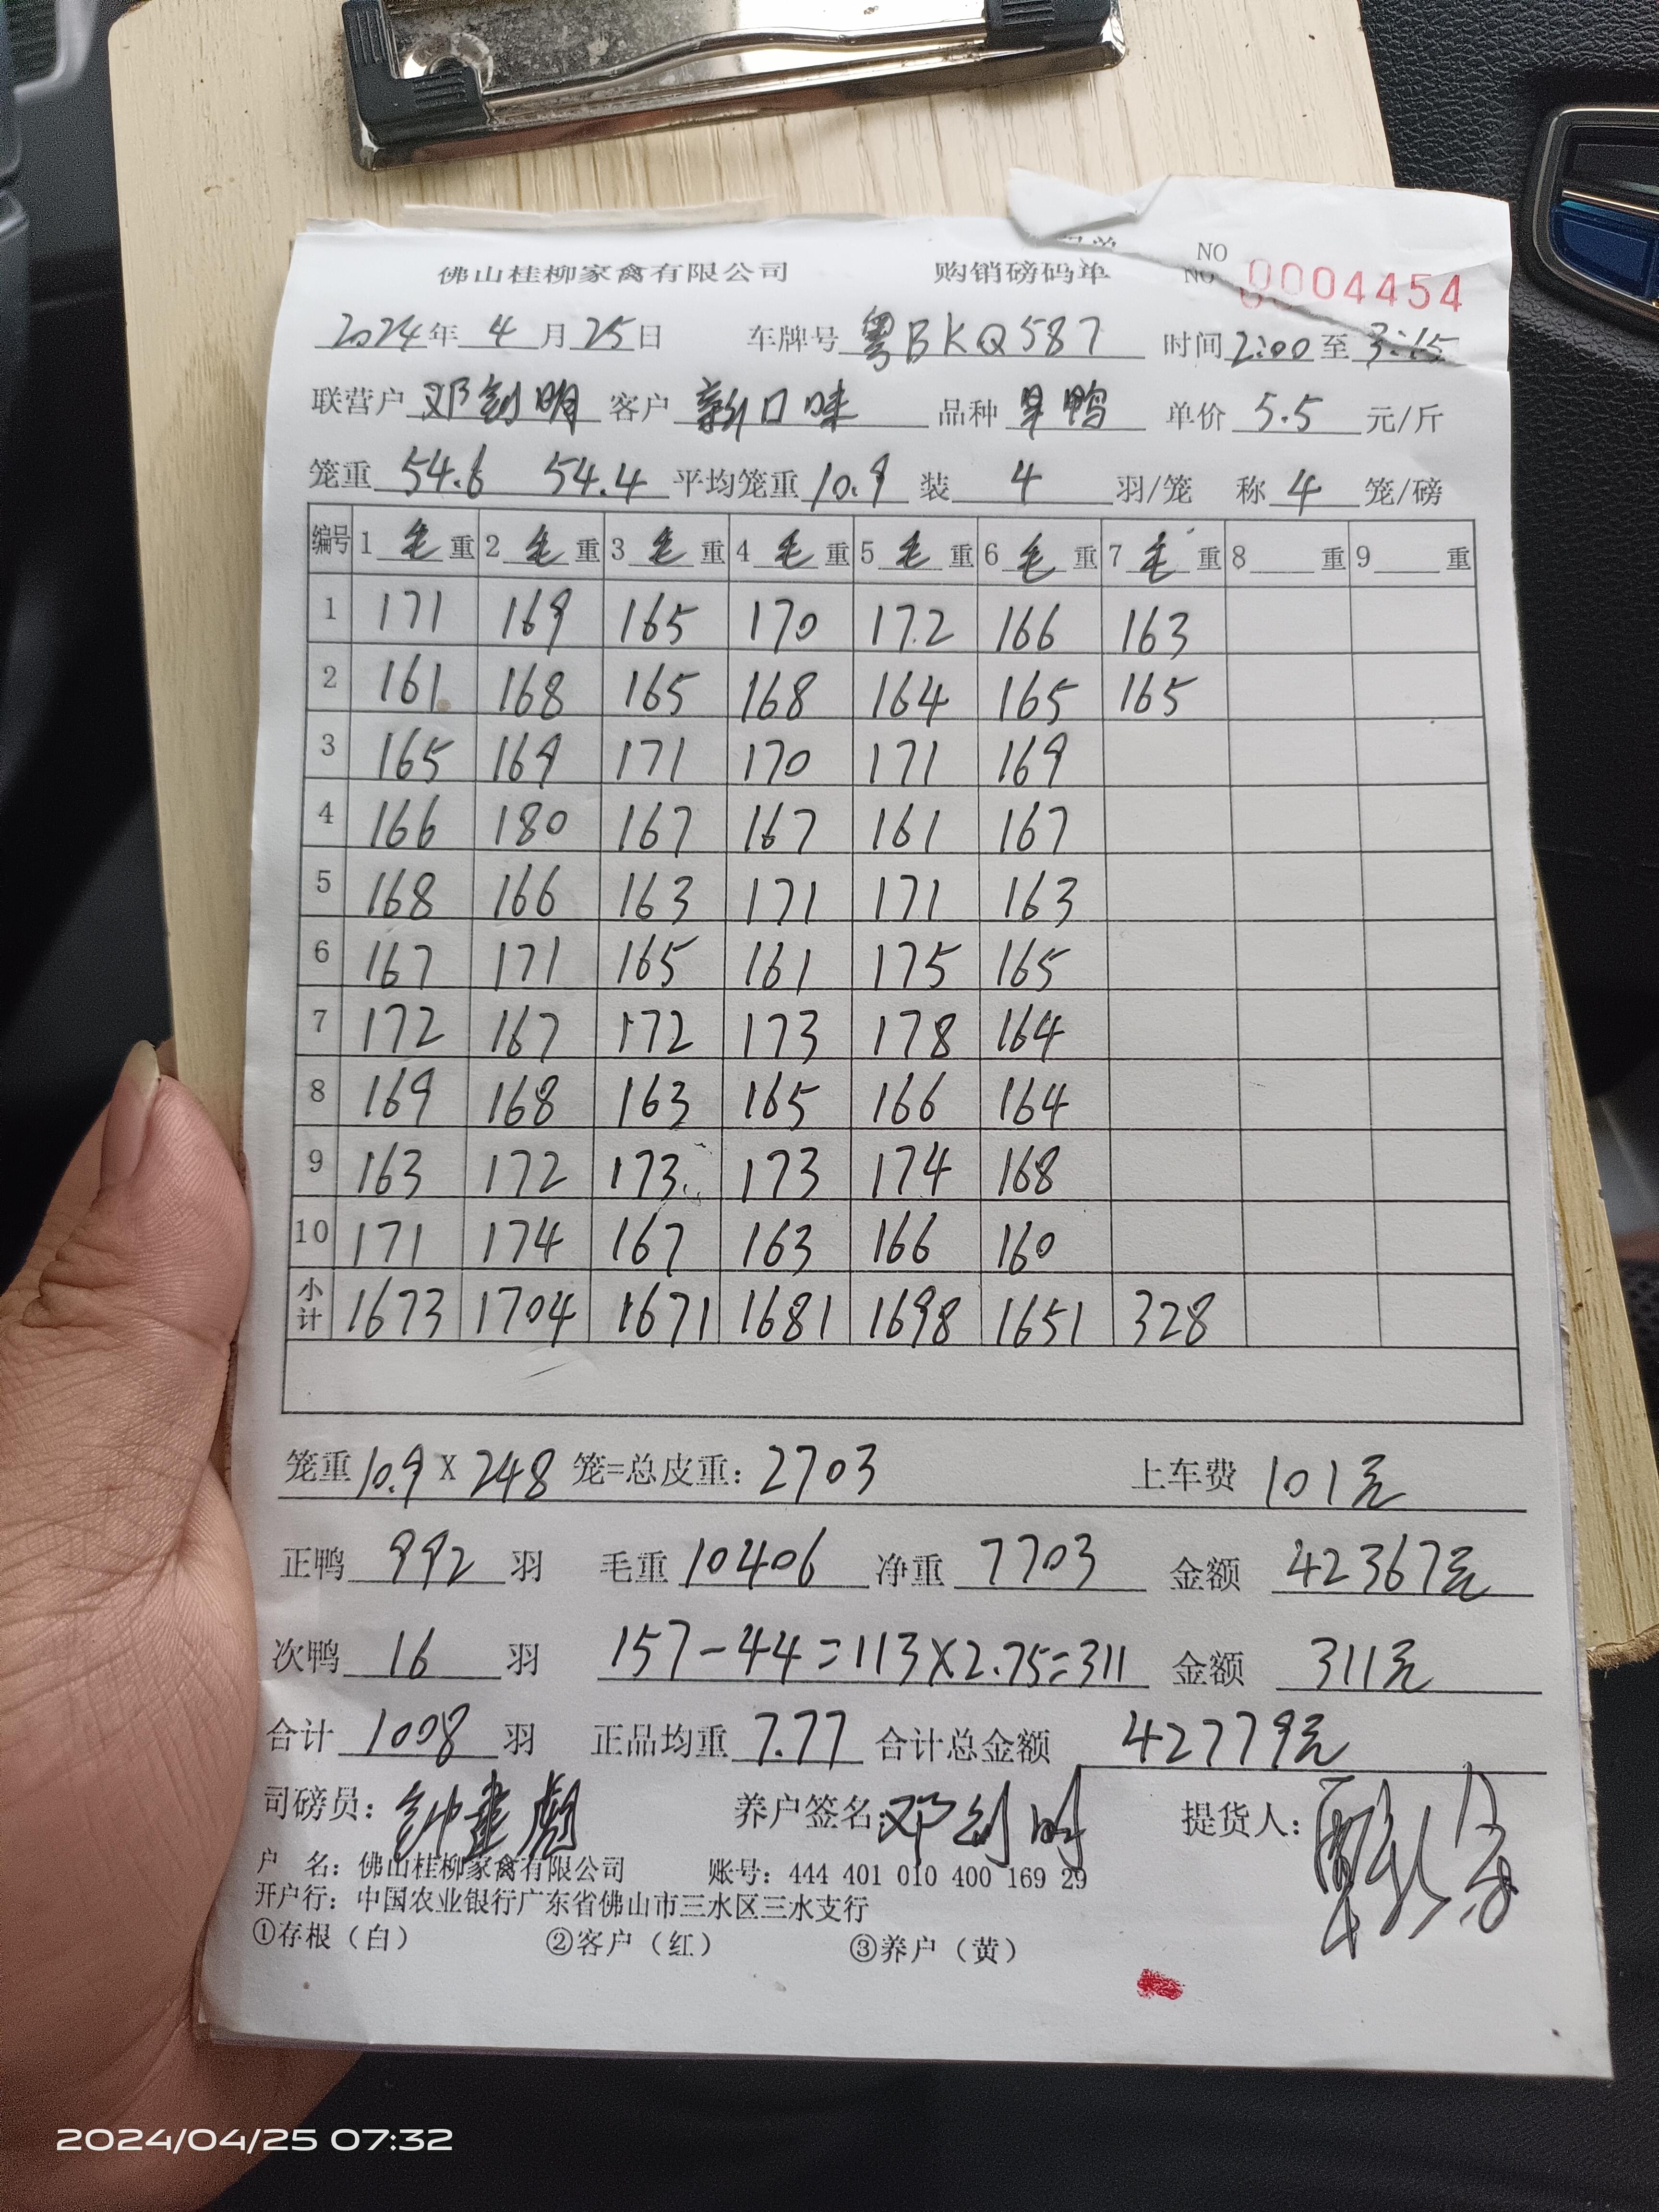 佛山桂柳家禽有限公司 购销磅码单 NO
NO 0004454
2024年 4月25日 车牌号 粤BKQ587 时间 2:00 至 3:15
联营户 邓剑明 客户 新口味 品种 旱鸭 单价 5.5 元/斤
笼重 54.6 54.4 平均笼重 10.9 装 4 羽/笼 称 4 笼/磅
编号 1 毛 重 2 毛 重 3 毛 重 4 毛 重 5 毛 重 6 毛 重 7 毛 重 8 重 9 重
1 171 169 165 170 172 166 163
2 161 168 165 168 164 165 165
3 165 169 171 170 171 169
4 166 180 167 167 161 167
5 168 166 163 171 171 163
6 167 171 165 161 175 165
7 172 167 172 173 178 164
8 169 168 163 165 166 164
9 163 172 173 173 174 168
10 171 174 167 163 166 160
小计 1673 1704 1671 1681 1698 1651 328
笼重 10.9 X 248 笼=总皮重: 2703 上车费 101元
正鸭 992 羽 毛重 10406 净重 7703 金额 42367元
次鸭 16 羽 157-44=113×2.75=311 金额 311元
合计 1008 羽 正品均重 7.77 合计总金额 42779元
司磅员: 养户签名: 邓剑明 提货人:
户 名: 佛山桂柳家禽有限公司 账号: 444 401 010 400 169 29
开户行: 中国农业银行广东省佛山市三水区三水支行
①存根（白） ②客户（红） ③养户（黄）
2024/04/25 07:32